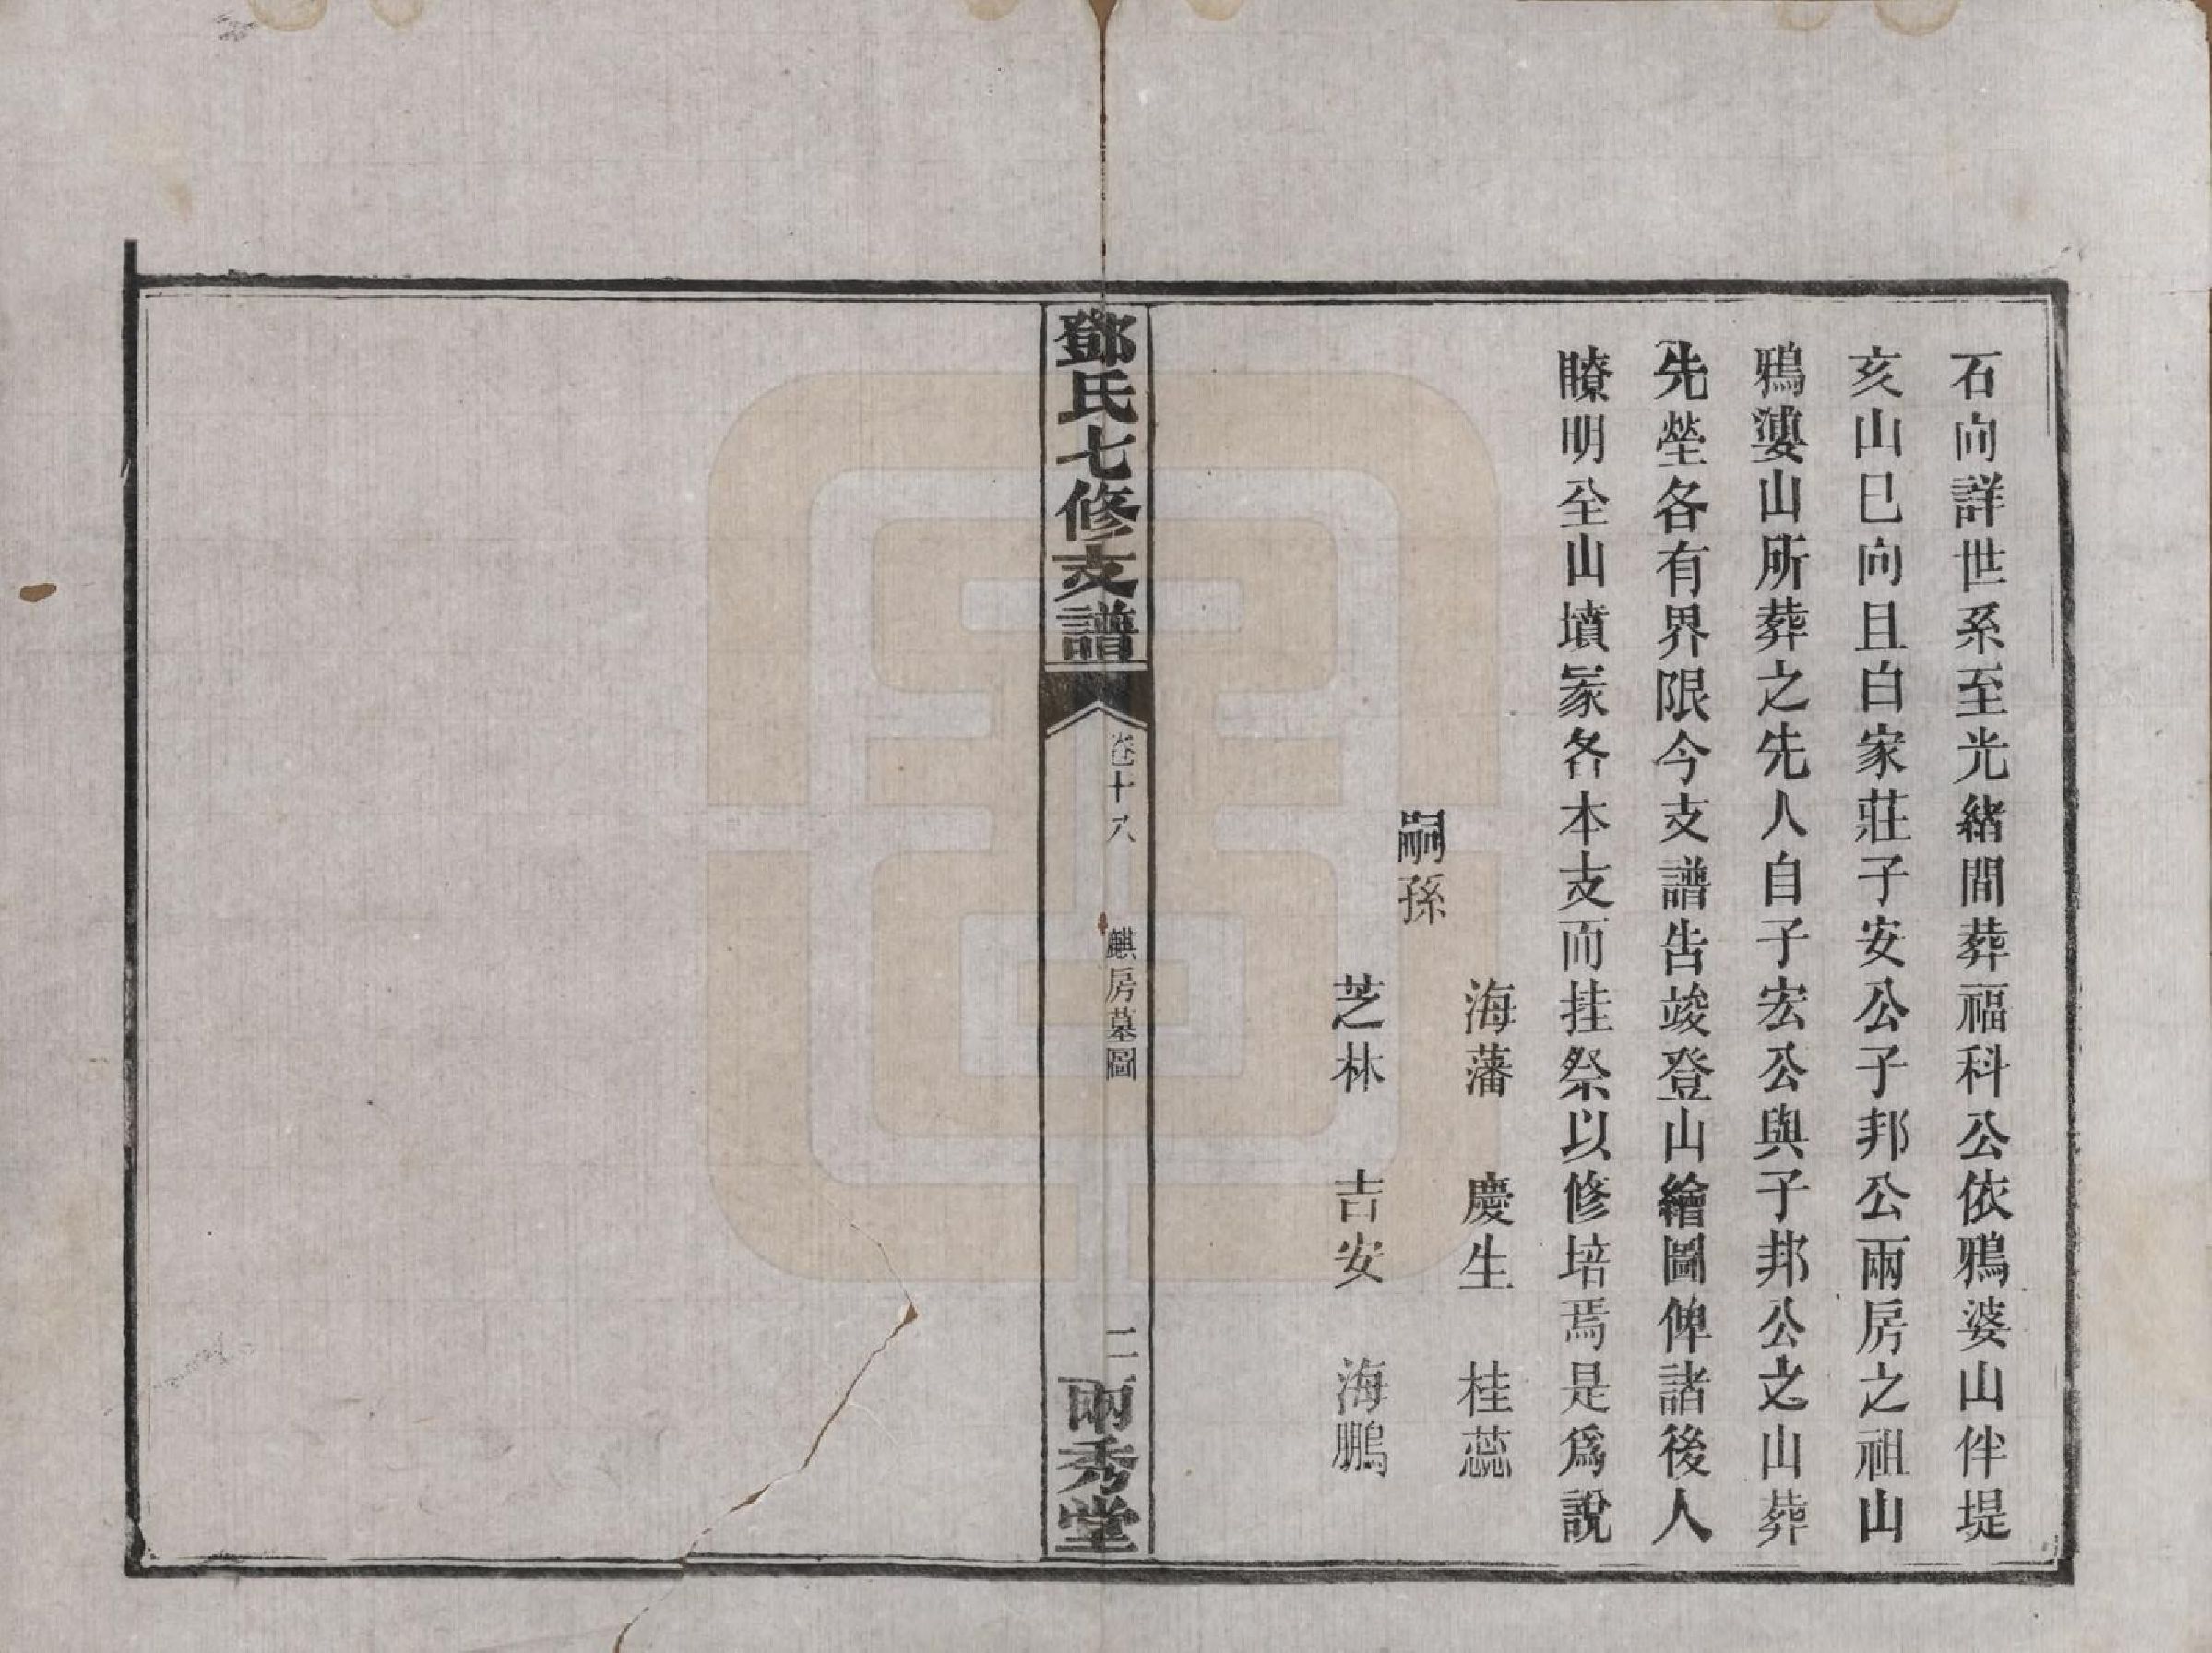 石向詳世系至光緒間葬福科公依鴉婆山伴堤
亥山巳向且白家莊子安公子邦公兩房之祖山
鴉婆山所葬之先人自子宏公與子邦公之山葬
先塋各有界限今支譜告竣登山繪圖俾諸後人
瞭明全山墳冡各本支而挂祭以修培焉是爲說
海藩　慶生　桂蕊
嗣孫
芝林　吉安　海鵬
鄧氏七修支譜
卷十八　麒房墓圖　二
兩秀堂